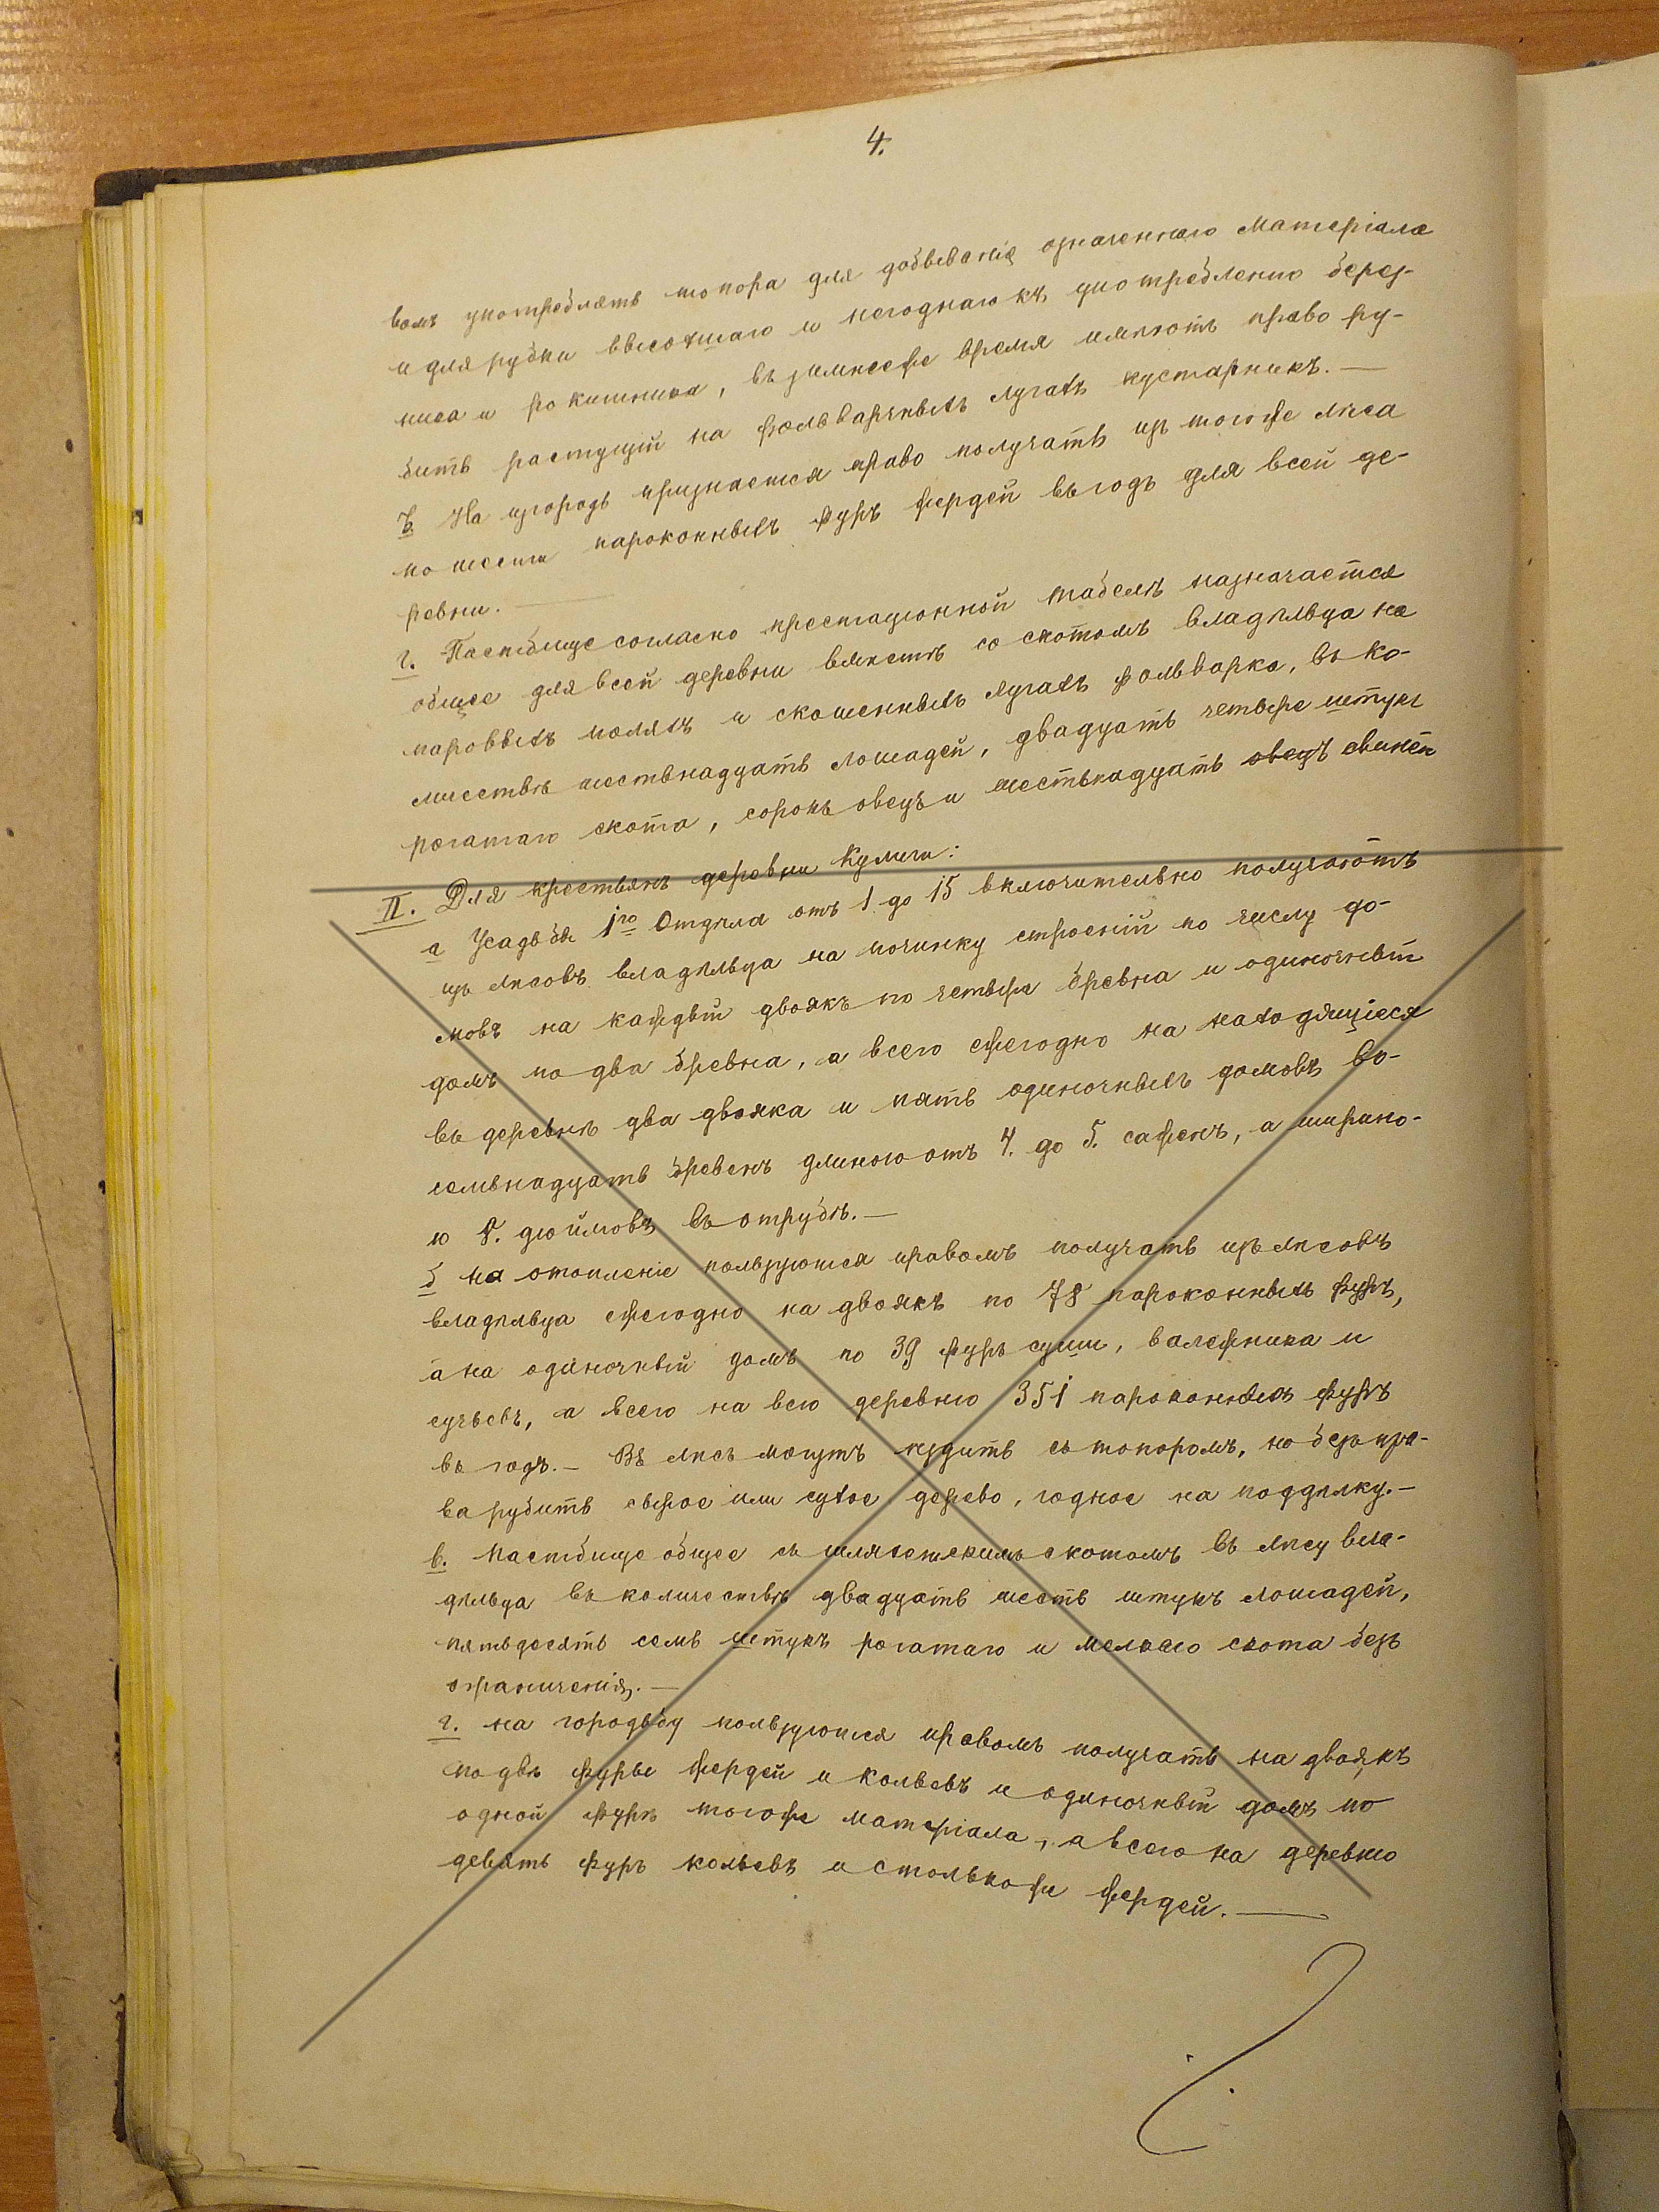 4.
вомъ употреблять топора для добыванія означеннаго матеріала
и для рубки высохшаго и негоднаго къ употребленію берез-
ника и рокитника, въ зимнееже время имѣютъ право ру-
бить растущій на фольварчныхъ лугахъ кустарникъ. —
в. На изгородь признается право получать изъ тогоже лѣса
по шести пароконныхъ фуръ жердей въ годъ для всей де-
ревни. —
г. Пастбище согласно престаціонной табели назначается
общее для всей деревни вмѣстѣ со скотомъ владѣльца на
паровыхъ поляхъ и скошенныхъ лугахъ фольварка, въ ко-
личествѣ шестьнадцать лошадей, двадцать четыре штуки
рогатаго скота, сорокъ овецъ и шестьнадцать овецъ свиней
II. Для крестьянъ деревни Кулиги:
а Усадьбы 1го Отдѣла отъ 1 до 15 включительно получаютъ
изъ лѣсовъ владѣльца на починку строеній по числу до-
мовъ на каждый двоякъ по четыре бревна и одиночный
домъ по два бревна, а всего ежегодно на находящіеся
въ деревнѣ два двояка и пять одиночныхъ домовъ во-
семьнадцать бревенъ длиною отъ 4. до 5. сажень, а ширино-
ю 8. дюймовъ въ отрубѣ. —
б на отопленіе пользуются правомъ получать изъ лѣсовъ
владѣльца ежегодно на двоякъ по 78 пароконныхъ фуръ,
а на одиночный домъ по 39 фуръ суши, валежника и
сучьевъ, а всего на всю деревню 351 пароконныхъ фуръ
въ годъ. — Въ лѣсъ могутъ ѣздить съ топоромъ, но безъ пра-
ва рубить сырое или сухое дерево, годное на поддѣлку. —
в. Пастбище общее съ шляхетскимъ скотомъ въ лѣсу вла-
дѣльца въ количествѣ двадцать шесть штукъ лошадей,
пятьдесятъ семь штукъ рогатаго и мелкаго скота безъ
ограниченія. —
г. на городьбу пользуются правомъ получать на двоякъ
по двѣ фуры жердей и кольевъ и одиночный домъ по
одной фурѣ тогоже матеріала, а всего на деревню
девять фуръ кольевъ и столькоже жердей. —